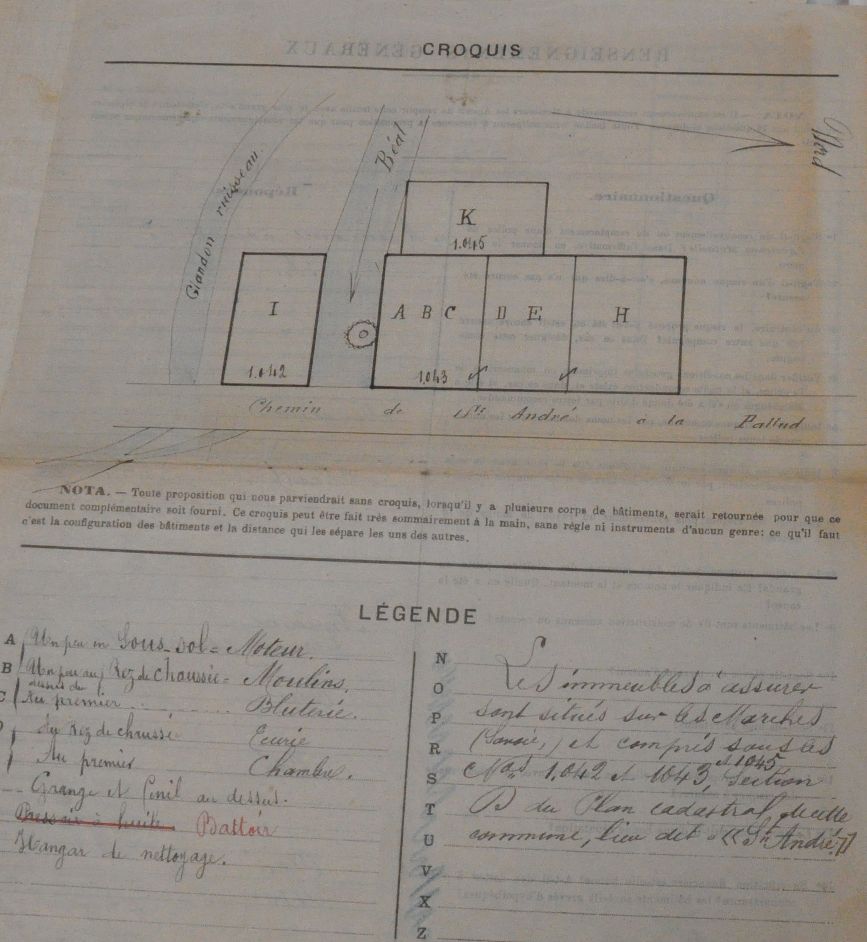 CROQUIS
Nord
Béal
Glandon ruisseau.
K
1.045
I
A B C
D E
H
1.042
1.043
Chemin de St André à la Pallud
NOTA. — Toute proposition qui nous parviendrait sans croquis, lorsqu'il y a plusieurs corps de bâtiments, serait retournée pour que ce
document complémentaire soit fourni. Ce croquis peut être fait très sommairement à la main, sans règle ni instruments d'aucun genre; ce qu'il faut
c'est la configuration des bâtiments et la distance qui les sépare les uns des autres.
LÉGENDE
A Un peu en Sous-sol = Moteur.
B Un peu au dessus du Rez de chaussée = Moulins.
C Au premier Bluterie.
Au Rez de chaussé Ecurie
Au premier Chambre.
Grange et Fenil au dessus.
Pressoir à huile Battoir
Hangar de nettoyage.
N
O
P
R
S
T
U
V
X
Z
Les immeubles à assurer
sont situés sur les Marches
(Savoie,) et compris sous les
Nos 1.042 et 1043, et 1045 Section
B du Plan cadastral de cette
commune, lieu dit «St André»